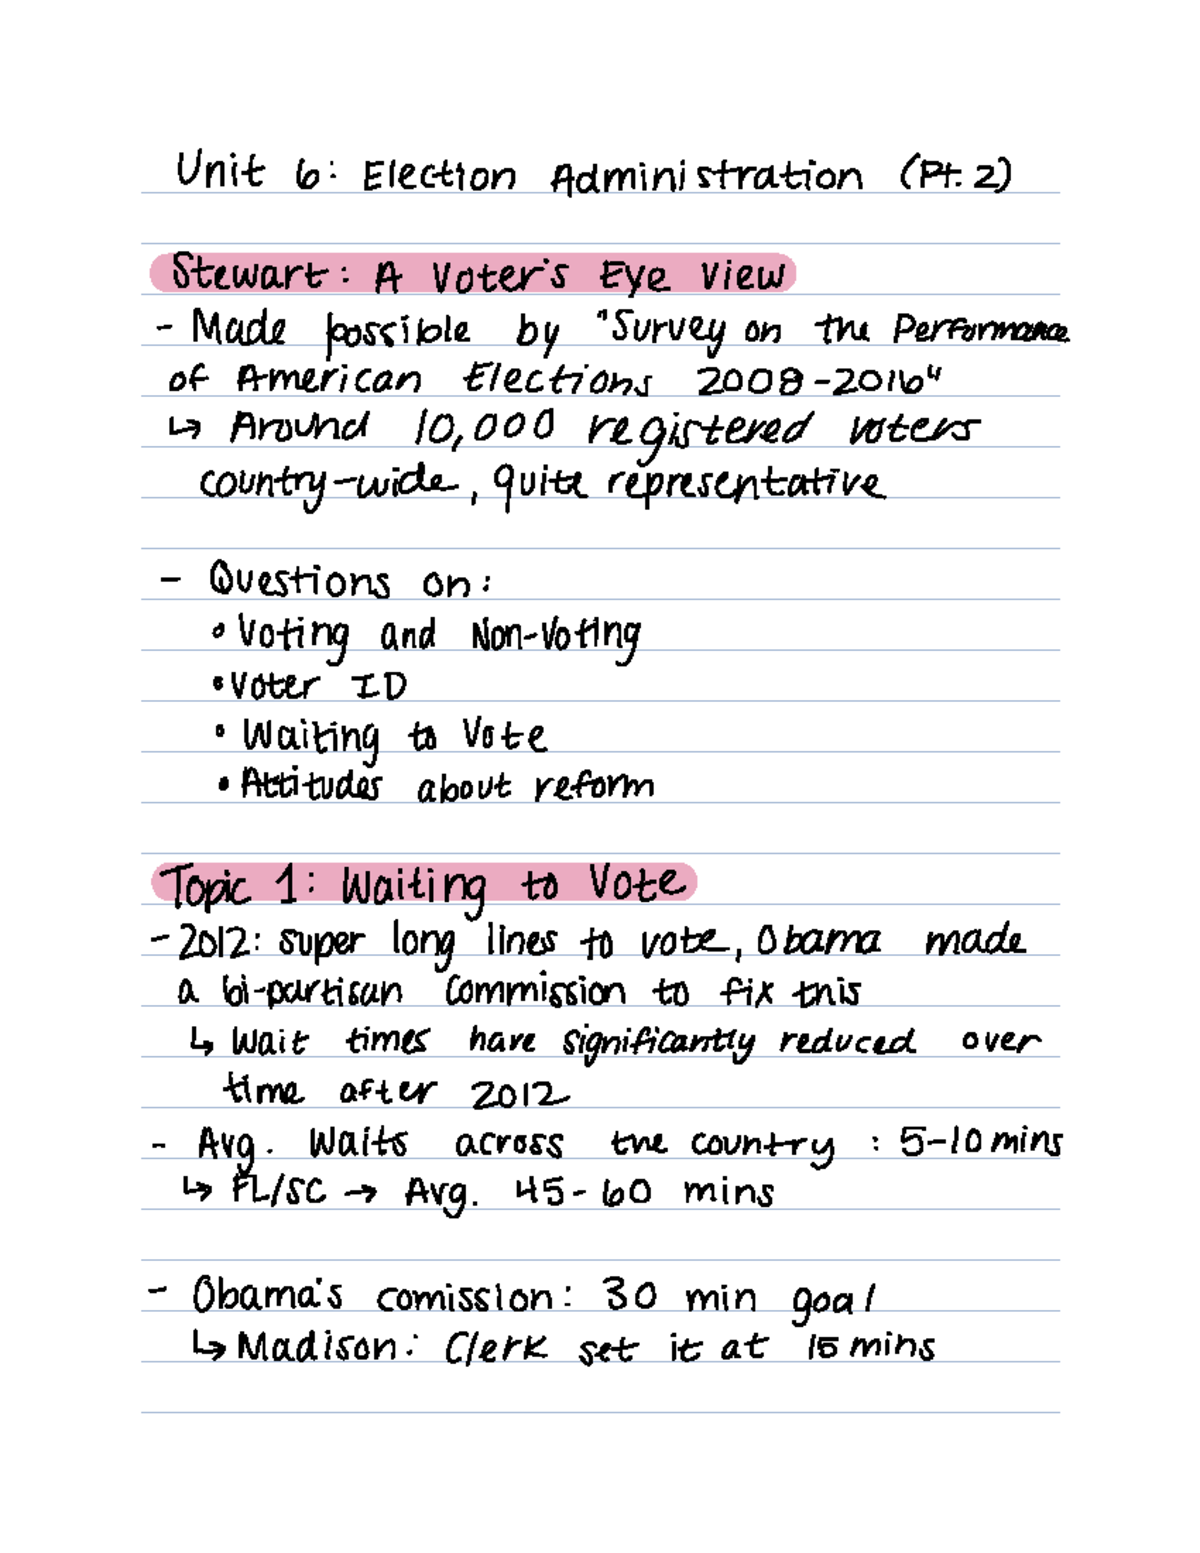 Unit 6: Election Administration (Pt. 2)
Stewart: A Voter's Eye View
- Made possible by "Survey on the Performance
of American Elections 2008-2016"
↳ Around 10,000 registered voters
country-wide, quite representative
- Questions on:
• Voting and Non-Voting
• Voter ID
• Waiting to Vote
• Attitudes about reform
Topic 1: Waiting to Vote
- 2012: super long lines to vote, Obama made
a bi-partisan Commission to fix this
↳ Wait times have significantly reduced over
time after 2012
- Avg. Waits across the country : 5-10 mins
↳ FL/SC → Avg. 45-60 mins
- Obama's comission: 30 min goal
↳ Madison: Clerk set it at 15 mins